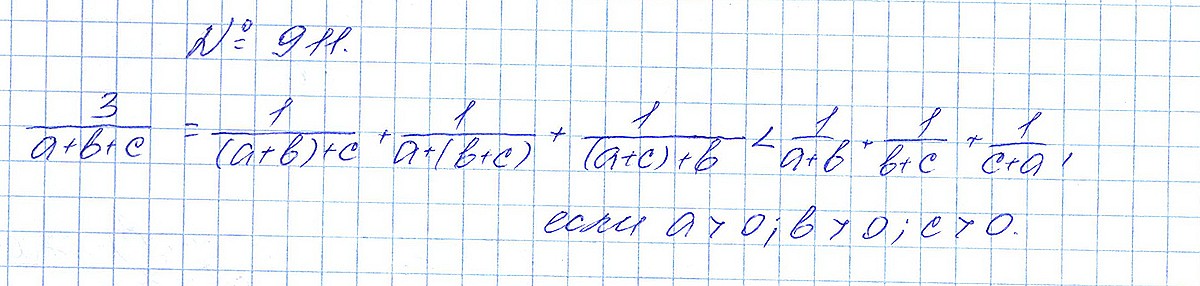 № 911.
3/(a+b+c) = 1/((a+b)+c) + 1/(a+(b+c)) + 1/((a+c)+b) < 1/(a+b) + 1/(b+c) + 1/(c+a),
если a > 0; b > 0; c > 0.